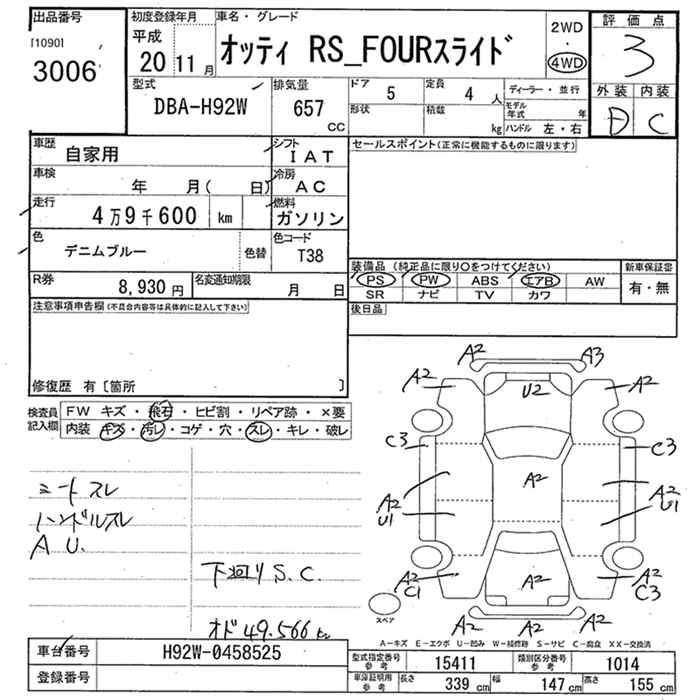 出品番号
[1090]
3006
初度登録年月
平成
20 11月
車名・グレード
オッティ RS_FOURスライド
2WD
・
4WD
評価点
3
外装 内装
D C
型式
DBA-H92W
排気量
657
CC
ドア 5
形状
定員 4 人
積載 kg
ディーラー・並行
モデル年式 年
ハンドル 左・右
車歴 自家用
シフト IAT
車検 年 月( 日)
冷房 AC
走行 4万9千600 km
燃料 ガソリン
色 デニムブルー 色替
色コード T38
R券 8,930 円
名変通知期限 月 日
注意事項申告欄(不具合内容等は具体的に記入して下さい)
修復歴 有〔箇所 〕
セールスポイント(正常に機能するものに限ります)
装備品(純正品に限り○をつけてください)
PS PW ABS エアB AW
SR ナビ TV カワ
新車保証書
有・無
後日品
検査員記入欄
FW キズ・飛石・ヒビ割・リペア跡・×要
内装 キズ・汚レ・コゲ・穴・スレ・キレ・破レ
シートスレ
ハンドルスレ
A U.
下廻りS.C.
オド49.566 km
A2 A3
A2 U2 A2
C3 C3
A2 A2 A2
U1 U1
A2 A2 A2
C1 C3
A2 A2 A2
スペア
A-キズ E-エクボ U-凹み W-補修跡 S-サビ C-腐食 XX-交換済
車台番号 H92W-0458525
登録番号
型式指定番号 参考 15411
類別区分番号 参考 1014
車庫証明用 参考 長さ 339 cm 幅 147 cm 高さ 155 cm